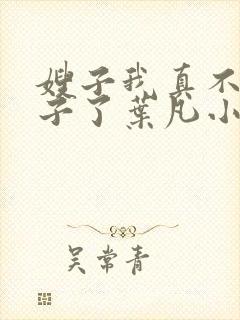 嫂子我真不
子了葉凡小
吴常青